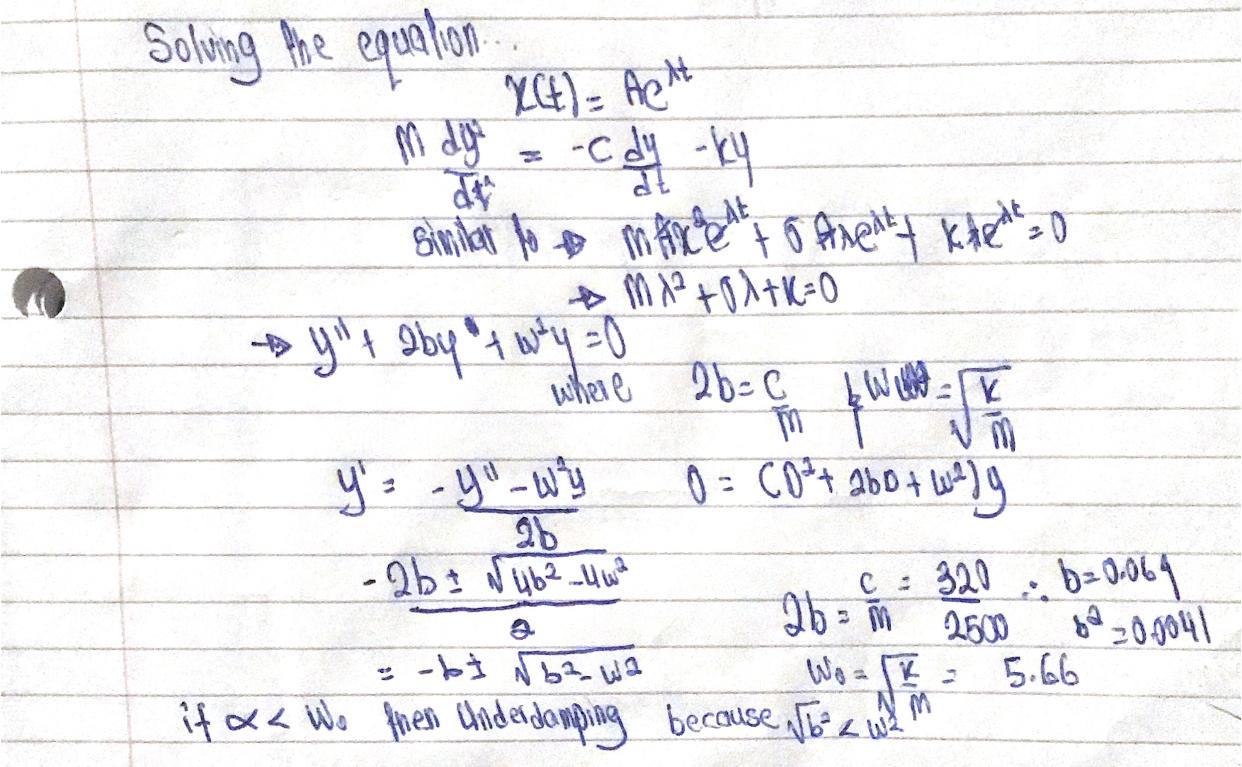 Solving the equation...
x(t) = Ae^λt
m dy²/dt² = -c dy/dt - ky
similar to → mAλ²e^λt + σAλe^λt + kAe^λt = 0
→ mλ² + σλ + k = 0
→ y'' + 2by' + w²y = 0
where 2b = c/m & w = √(k/m)
y' = (-y'' - w²y)/2b 0 = (D² + 2bD + w²)y
(-2b ± √(4b² - 4w²))/2 2b = c/m = 320/2500 ∴ b = 0.064
b² = 0.0041
= -b ± √(b² - w²) W₀ = √(k/m) = 5.66
if α < W₀ then Underdamping because √b² < w²